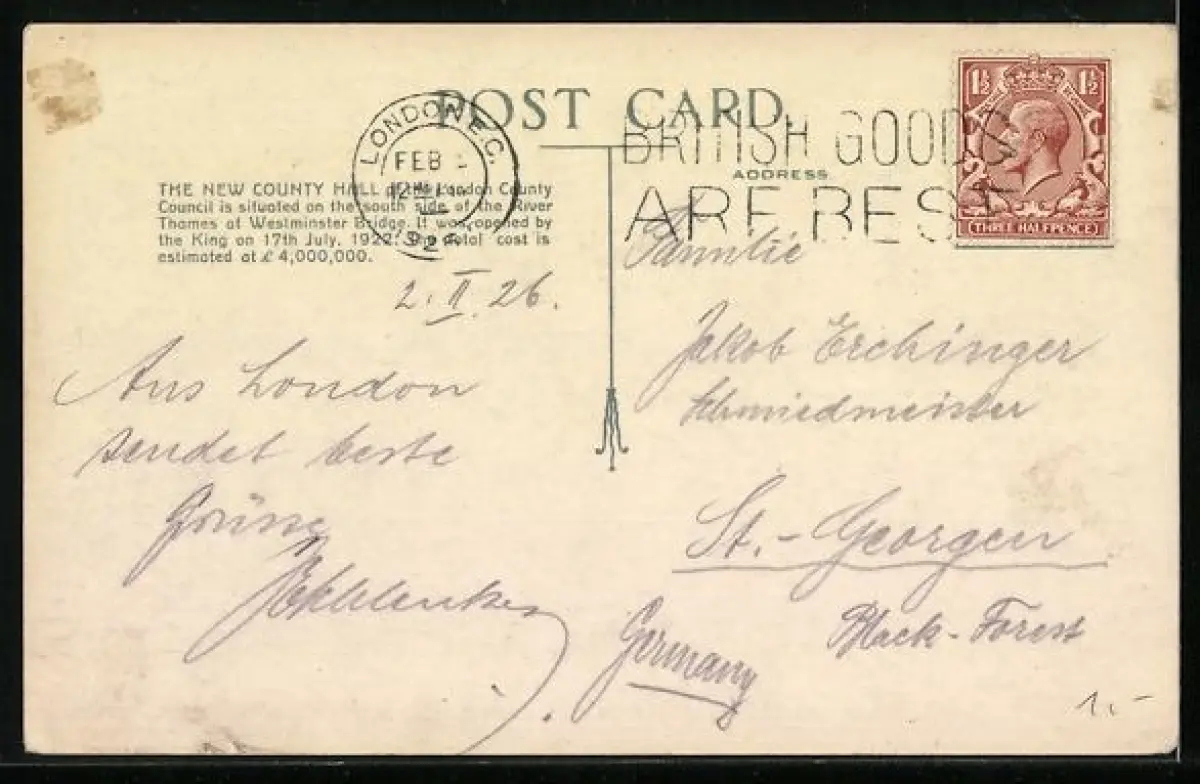 POST CARD.
LONDON E.C.
FEB
192
BRITISH GOODS
ARE BEST
1½ 1½
THREE HALFPENCE
ADDRESS
THE NEW COUNTY HALL of the London County
Council is situated on the south side of the River
Thames at Westminster Bridge. It was opened by
the King on 17th July, 1922. The total cost is
estimated at £4,000,000.
2. II. 26.
Aus London
sendet beste
Grüsse
Familie
Jakob Erchinger
Schmiedmeister
St.-Georgen
Black-Forest
Germany
1.-